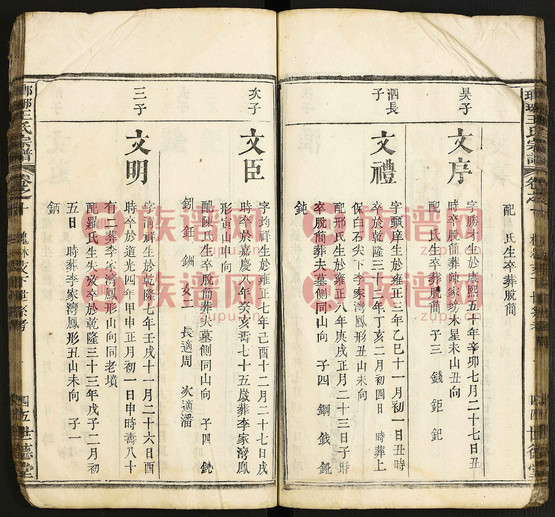 昊子
文序
字勝 生於康熙五十年辛卯七月二十七日丑
時卒脫簡葬 家坊木星未山丑向
配 氏生卒葬脫簡 子三 錢 鉅 鈀
泗長子
文禮
字 祥生於雍正三年乙巳十一月初一日丑時
卒於乾隆三十二年丁亥二月初四日 時葬上
保白石尖下李家灣鳳形丑山未向
配邢氏生於雍正八年庚戌正月二十三日子時
卒脫簡葬夫墓側同山向 子四 鋼 鉞
鈍
琅琊王氏宗譜 卷之十
四五 世德堂
次子
文臣
字 祥生於雍正七年己酉十二月二十七日戌
時卒於嘉慶八年癸亥壽七十五歲葬李家灣鳳
形寅山申向
配陳氏生卒脫簡葬夫墓側同山向 子四
釗 鉦 鋼 女二 長適周 次適潘
三子
文明
字清祥生於乾隆七年壬戌十一月二十六日酉
時卒於道光四年甲申正月初一日申時壽八十
有二葬李家灣鳳形丑山未向同老墳
配羅氏生失考卒於乾隆三十三年戊子二月初
五日 時葬李家灣鳳形丑山未向 子一
鈵
琅琊王氏宗譜 卷之十
四五 世德堂
族谱网
zupu.cn
族谱网
zupu.cn